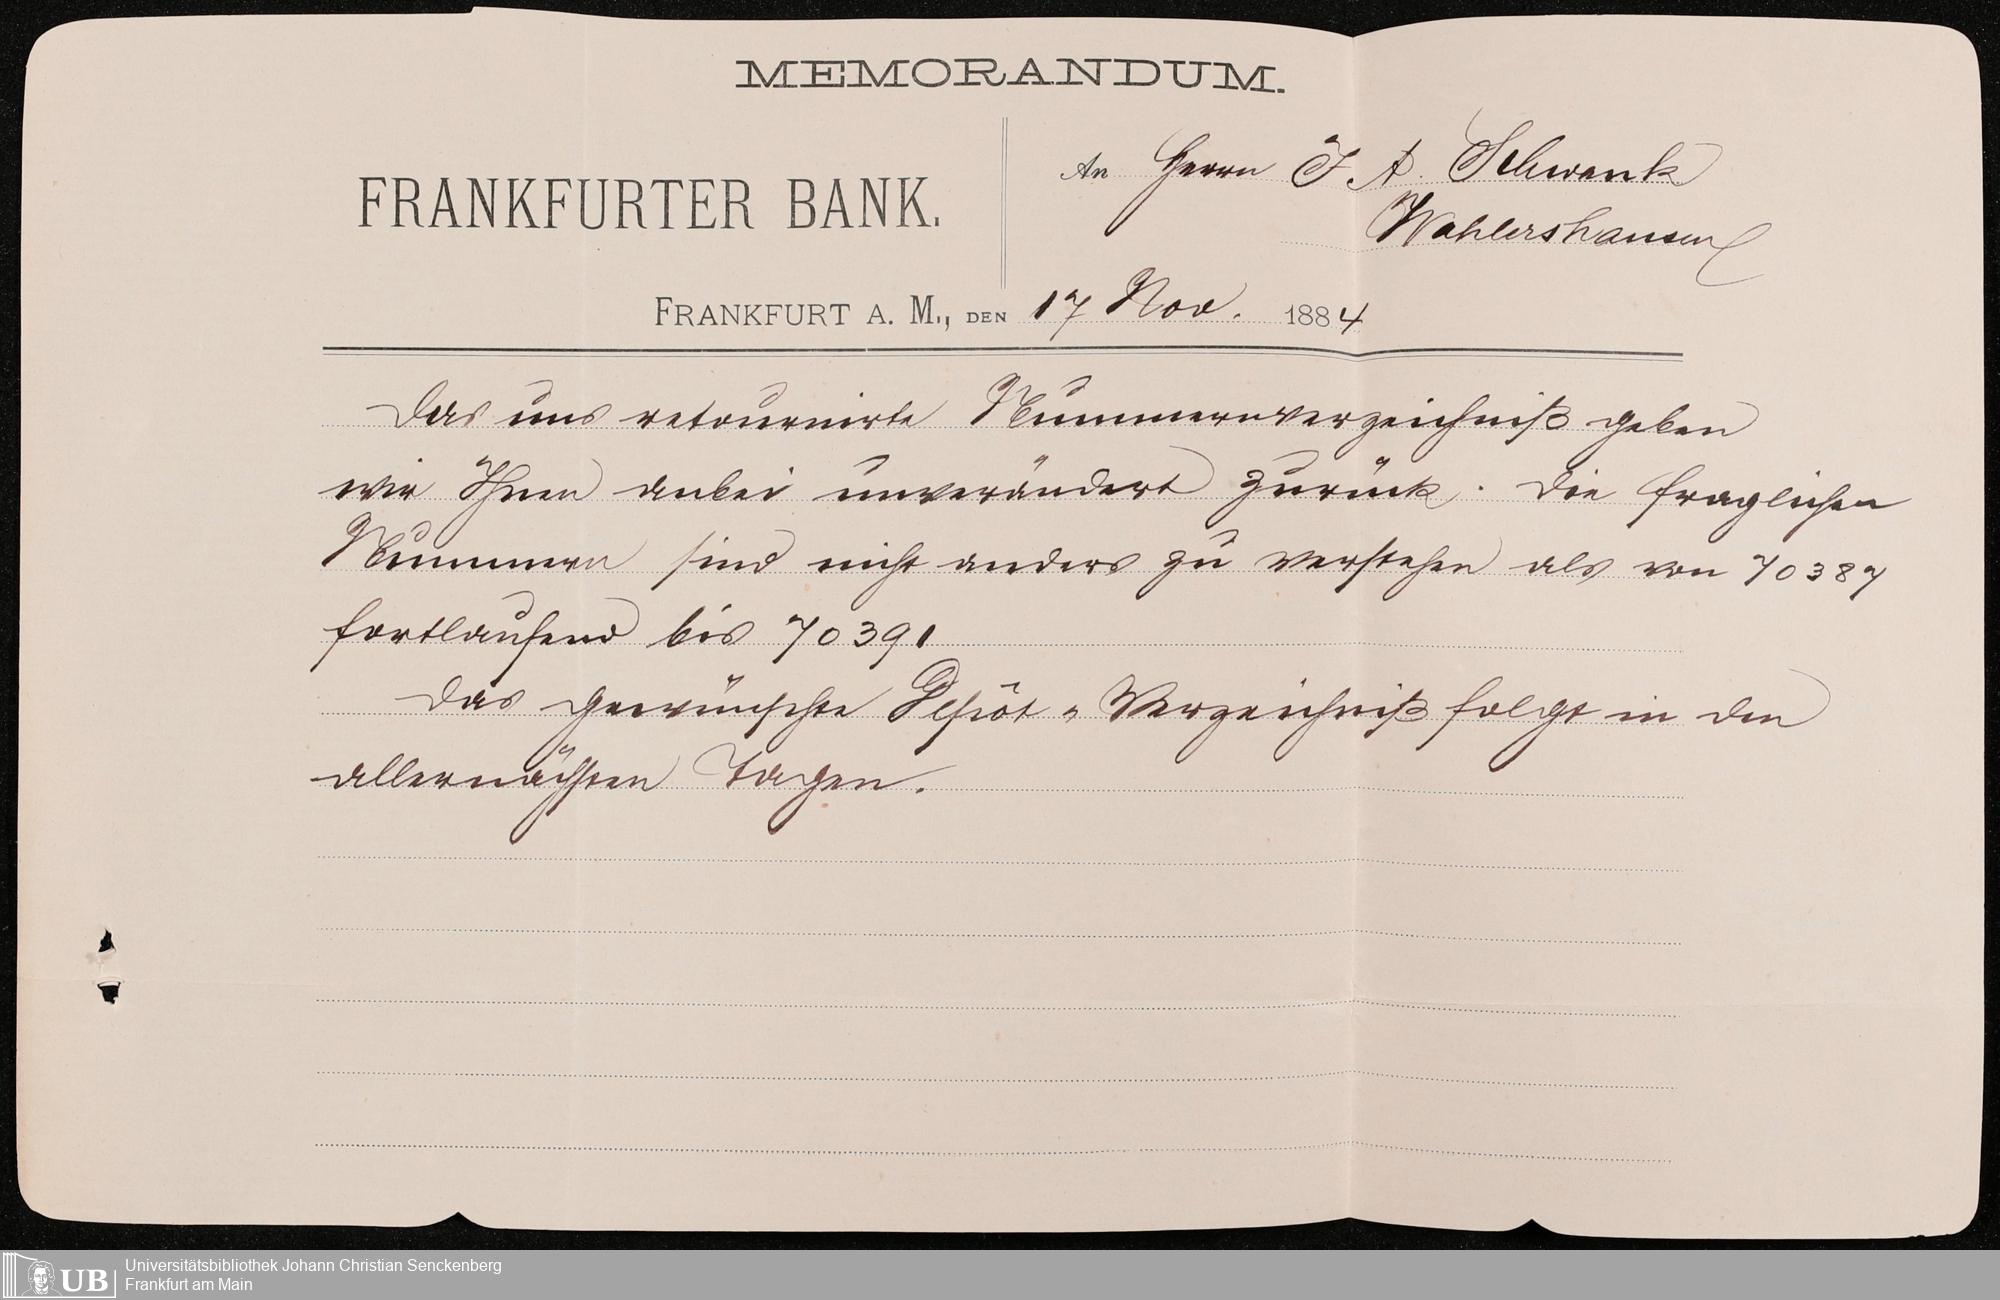 MEMORANDUM.
FRANKFURTER BANK.
An Herrn J. A. Schwenk
Wahlershausen
FRANKFURT A. M., DEN 17 Nov. 1884
Das uns retournirte Nummernverzeichniß geben
wir Ihnen anbei unverändert zurück. Die fraglichen
Nummern sind nicht anders zu verstehen als von 70387
fortlaufend bis 70391
Das gewünschte Depôt-Verzeichniß folgt in den
allernächsten Tagen.
UB
Universitätsbibliothek Johann Christian Senckenberg
Frankfurt am Main